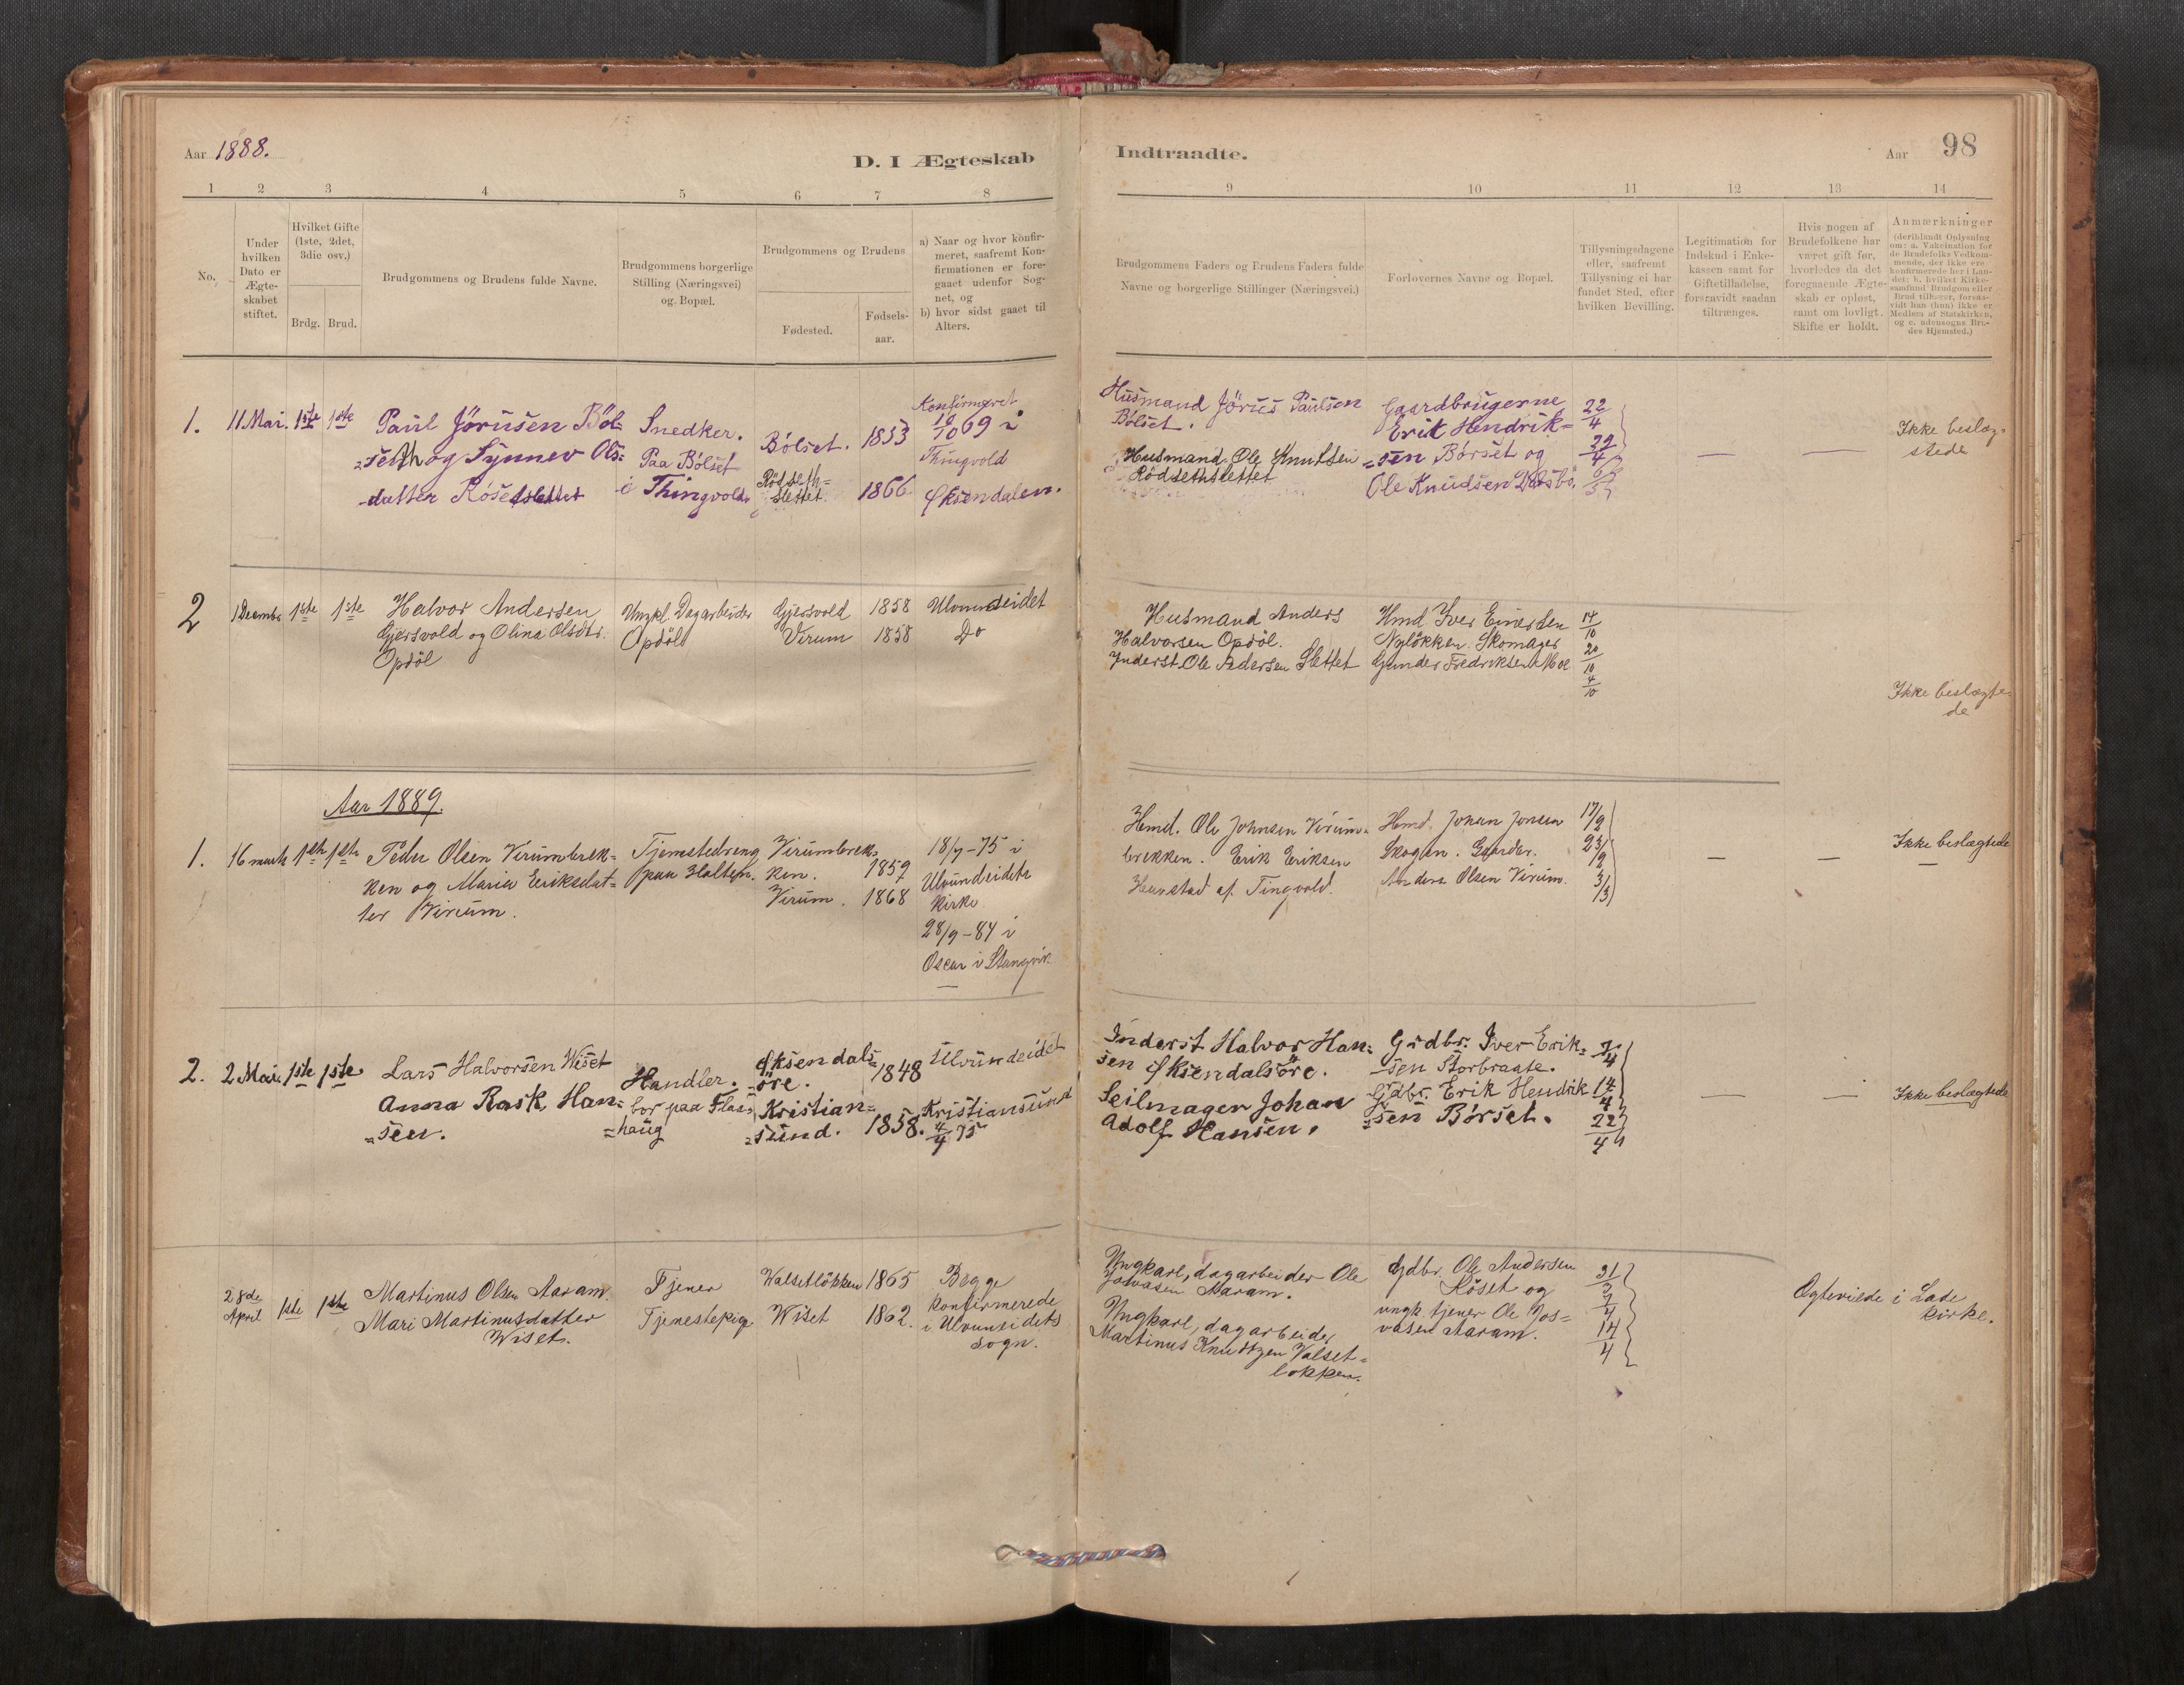 Aar 1888.
D. I Ægteskab
Indtraadte.
Aar 98
1 2 3 4 5 6 7 8
9 10 11 12 13 14
No.
Under
hvilken
Dato er
Ægte-
skabet
stiftet.
Hvilket Gifte
(1ste, 2det,
3die osv.)
Brdg. Brud.
Brudgommens og Brudens fulde Navne.
Brudgommens borgerlige
Stilling (Næringsvei)
og Bopæl.
Brudgommens og Brudens
Fødested.
Fødsels-
aar.
a) Naar og hvor konfir-
meret, saafremt Kon-
firmationen er fore-
gaaet udenfor Sog-
net, og
b) hvor sidst gaaet til
Alters.
Brudgommens Faders og Brudens Faders fulde
Navne og borgerlige Stillinger (Næringsvei.)
Forlovernes Navne og Bopæl.
Tillysningsdagene
eller, saafremt
Tillysning ei har
fundet Sted, efter
hvilken Bevilling.
Legitimation for
Indskud i Enke-
kassen samt for
Giftetilladelse,
forsaavidt saadan
tiltrænges.
Hvis nogen af
Brudefolkene har
været gift før,
hvorledes da det
foregaaende Ægte-
skab er opløst,
samt om lovligt
Skifte er holdt.
Anmærkninger
(deriblandt Oplysning
om: a. Vakcination for
de Brudefolks Vedkom-
mende, der ikke ere
konfirmerede her i Lan-
det; b. hvilket Kirke-
samfund Brudgom eller
Brud tilhører, forsaa-
vidt han (hun) ikke er
Medlem af Statskirken,
og c. udensogns Bru-
des Hjemsted.)
1.
11 Mai.
1ste 1ste
Paul Jörusen Böl-
=seth og Synnev Ols=
-datter Röset slettet
Snedker.
Paa Bölset
i Thingvold.
Bölset.
Rödseth=
slettet.
1853
1866
Konfirmeret
10/10 69 i
Thingvold
Øksendalen.
Husmand Jörus Paulsen
Bölset.
Husmand Ole Knutsen
Rödsethslettet
Gaardbrugerne
Erik Hendrik=
=sen Börset og
Ole Knudsen
22/4
29/4
6/5
— —
Ikke beslæg=
stede
2
1 Decembr
1ste 1ste
Halvor Andersen
Gjersvold og Olina Olsdtr.
Opdöl
Ungkl. Dagarbeider
Opdöl
Gjersvold
Virum
1858
1858
Ulvundeidet
Do
Husmand Anders
Halvorsen Opdöl.
Inderst Ole Pedersen Slettet
Hmd Iver Eivertsen
Nylökken. Skomager
Gunder Fredriksen Moe
14/10
20/10
4/10
Ikke beslægte-
de
Aar 1889.
1.
16 marts
1ste 1ste
Peder Olsen Virumbrek-
ken og Maria Eriksdat-
ter Virum.
Tjenestedreng
paa Holten.
Virumbrek-
ken.
Virum.
1857
1868
18/7-75 i
Ulvundeidets
kirke
28/9-84 i
Oscar i Stangvik
—
Hmd. Ole Johnsen Virum-
brekken. Erik Eriksen
Hanstad af Tingvold.
Hmd. Johan Jonsen
Skogan. Gaardbr.
Anders Olsen Virum.
17/2
23/2
3/3
— —
Ikke beslægtede
—
2.
2 Mai.
1ste 1ste
Lars Halvorsen Wiset
Anna Rask Han=
=sen.
Handler.
bor paa Flaas
=haug
Øksendals=
-öre.
Kristian=
=sund.
1848
1858.
Ulvundeidet
Kristiansund
4/4 75
Inderst Halvor Han=
sen Øksendalsöre.
Seilmager Johan
Adolf Hansen.
Grdbr. Iver Erik=
-sen Storbraate.
Grdbr. Erik Hendrik
=sen Börset.
7/4
14/4
22/4
— —
Ikke beslægtede
28de
April
1ste 1ste
Martinus Olsen Aaram.
Mari Martinusdatter
Wiset.
Tjener
Tjenestepige
Walsetlökken
Wiset
1865
1862.
Begge
konfirmerede
i Ulvundeidets
Sogn.
Ungkarl, dagarbeider Ole
Josvasen Aaram.
Ungkarl, dagarbeider
Martinus Knudtzen Valset=
lokken.
Gdbr. Ole Andersen
Röset og
ungk. tjener Ole Jos=
vasen Aaram.
31/3
7/4
14/4
Ægteviede i Lade
kirke.